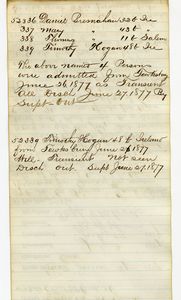 52336 Daniel Bresnahan 52 b Ire
337 Mary " 43 b "
338 Thomas " 11 b Salem
339 Timothy Hogan 48 b Ire
The above named 4 Persons
were admitted from Tewksbury
June 26 1877 as Transient
All Disch June 27 1877 By
Supt Out
52339 Timothy Hogan 48 b Ireland
from Tewksbury June 26 1877
Well. Transient Not seen
Disch Out Supt June 27. 1877